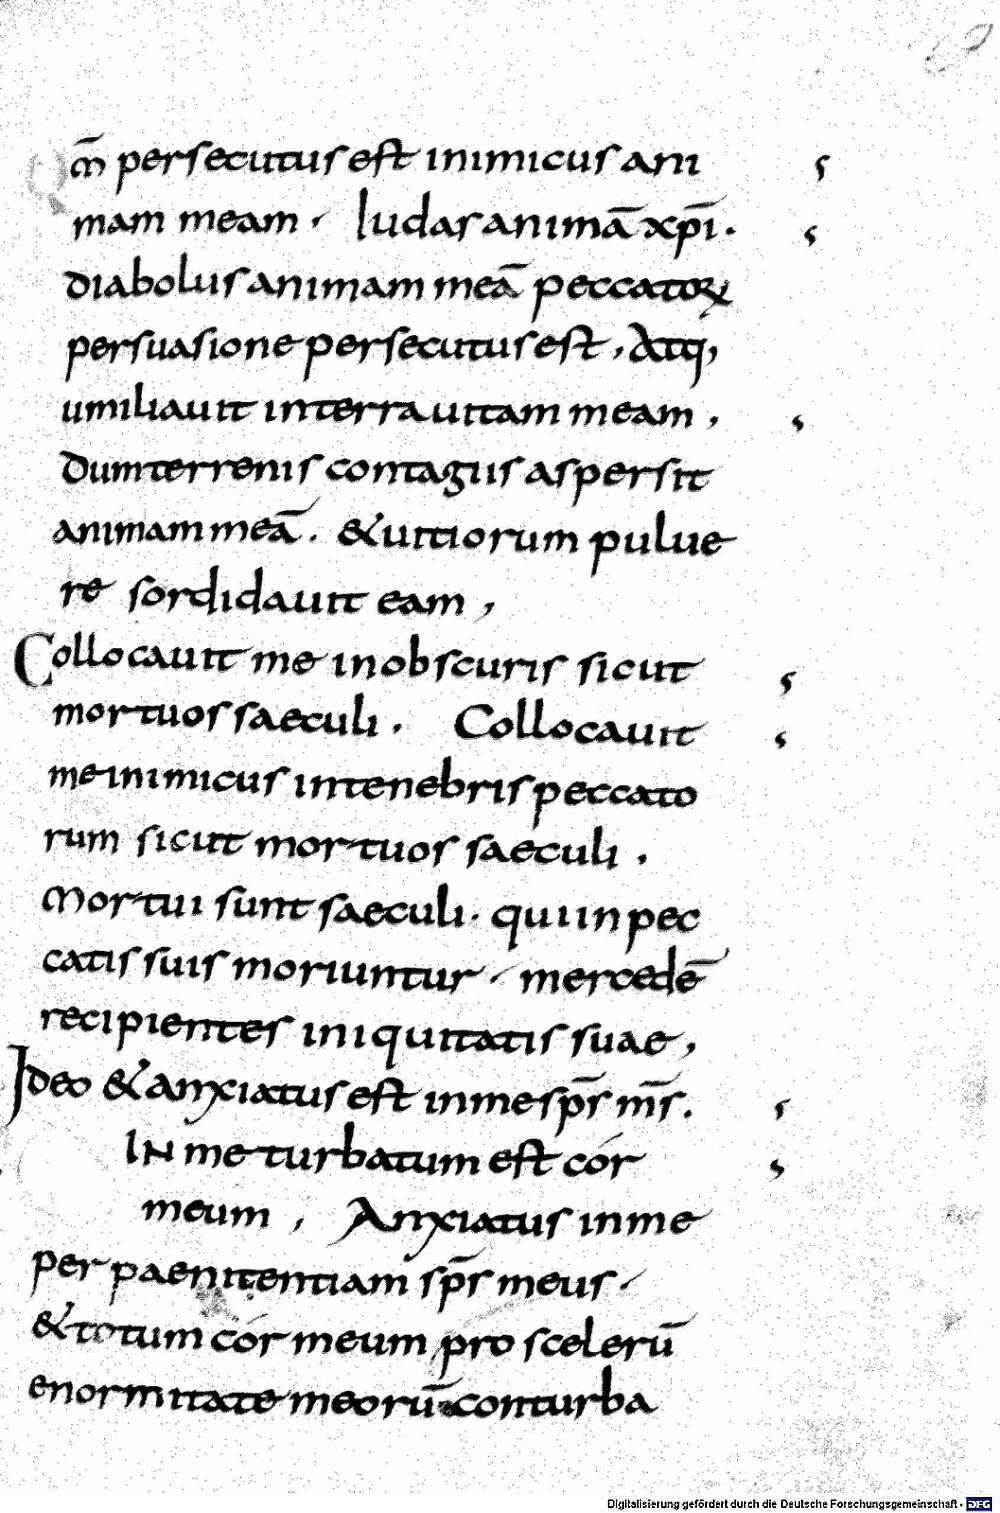 Qm̄ persecutus est inimicus ani
mam meam. Iudas animā xp̄i.
diabolus animam meā peccatorꝝ
persuasione persecutus est, Atq;
umiliauit interra uitam meam,
dum terrenis contagiis aspersit
animam meā. & uitiorum pulue
re sordidauit eam,
Collocauit me inobscuris sicut
mortuos saeculi. Collocauit
me inimicus intenebris peccato
rum sicut mortuos saeculi.
Mortui sunt saeculi. qui in pec
catis suis moriuntur. mercedē
recipientes iniquitatis suae,
Ideo & anxiatus est in me sp̄s m̄s.
IN me turbatum est cór
meum, Anxiatus in me
per paenitentiam sp̄s meus.
& totum cór meum pro scelerū
enormitate meorū conturba
Digitalisierung gefördert durch die Deutsche Forschungsgemeinschaft - DFG